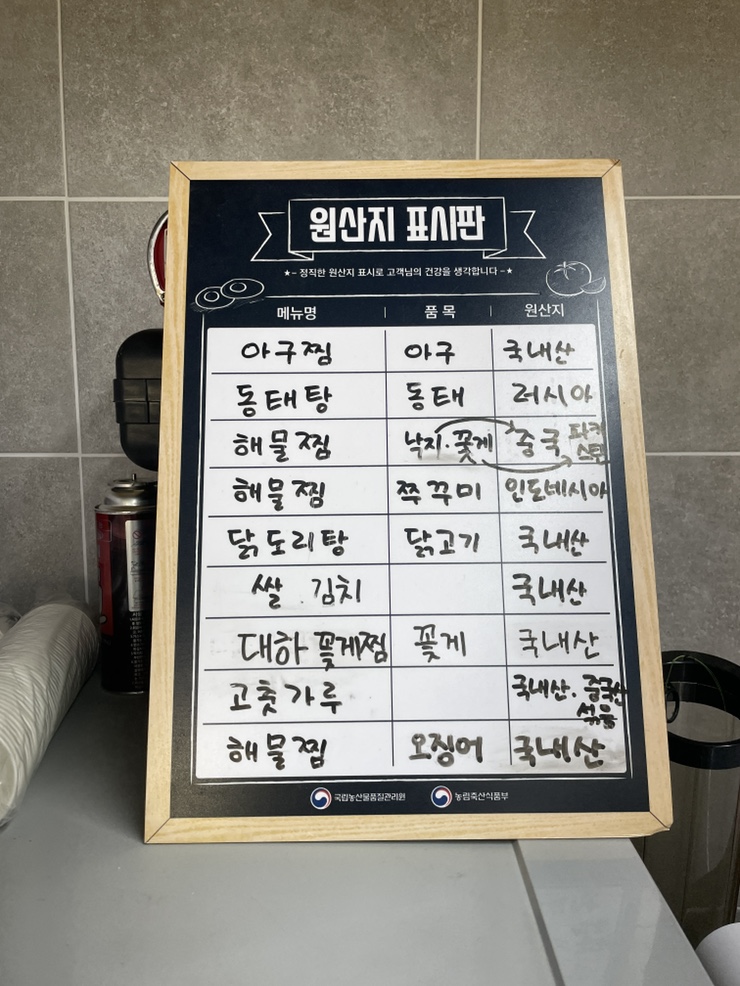 원산지 표시판
★- 정직한 원산지 표시로 고객님의 건강을 생각합니다 -★
메뉴명 품목 원산지
아구찜 아구 국내산
동태탕 동태 러시아
해물찜 낙지·꽃게 중국 파키스탄
해물찜 쭈꾸미 인도네시아
닭도리탕 닭고기 국내산
쌀.김치 국내산
대하꽃게찜 꽃게 국내산
고춧가루 국내산.중국산 섞음
해물찜 오징어 국내산
국립농산물품질관리원 농림축산식품부